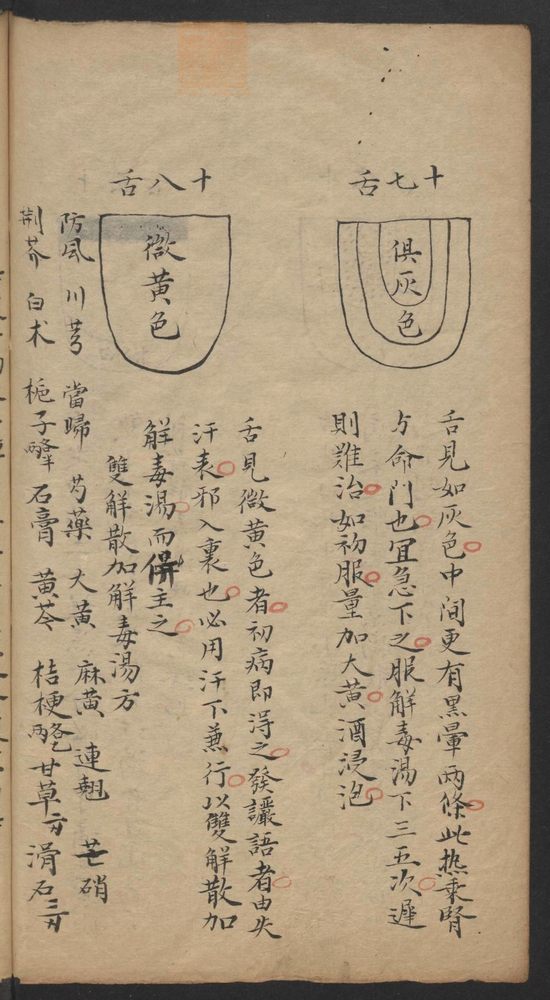 十七舌
俱灰色
舌見如灰色中間更有黑暈兩條此热乘腎
与命門也冝急下之服解毒湯下三五次遲
則難治如初服量加大黄酒浸泡
十八舌
微黄色
舌見微黄色者初病即得之發讝語者由失
汗表邪入裏也必用汗下兼行以雙解散加
解毒湯而併主之
雙解散加解毒湯方
防風 川芎 當歸 芍藥 大黄 麻黄 連翹 芒硝
荆芥 白术 梔子 石膏 黄芩 桔梗 甘草 滑石